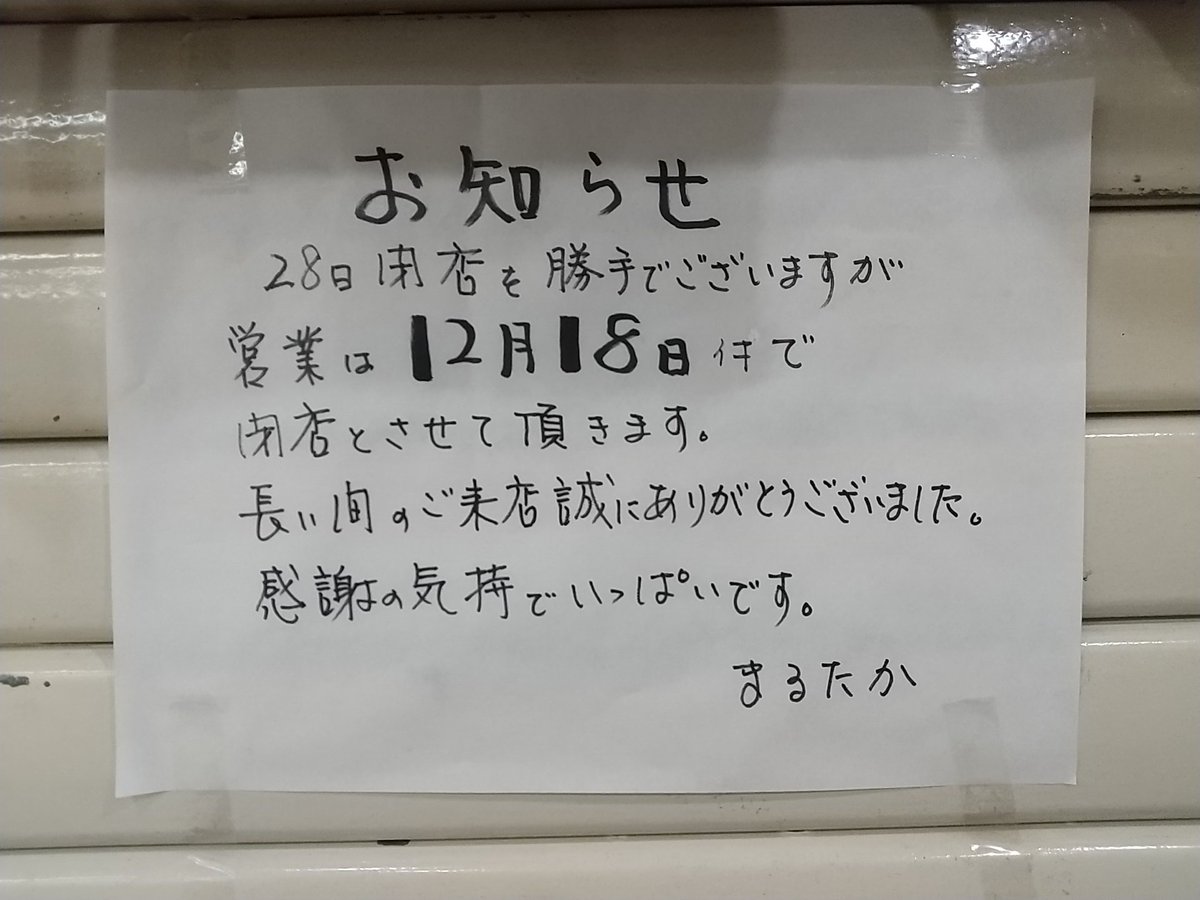 お知らせ
28日閉店を勝手でございますが
営業は12月18日付で
閉店とさせて頂きます。
長い間のご来店誠にありがとうございました。
感謝はの気持でいっぱいです。
まるたか